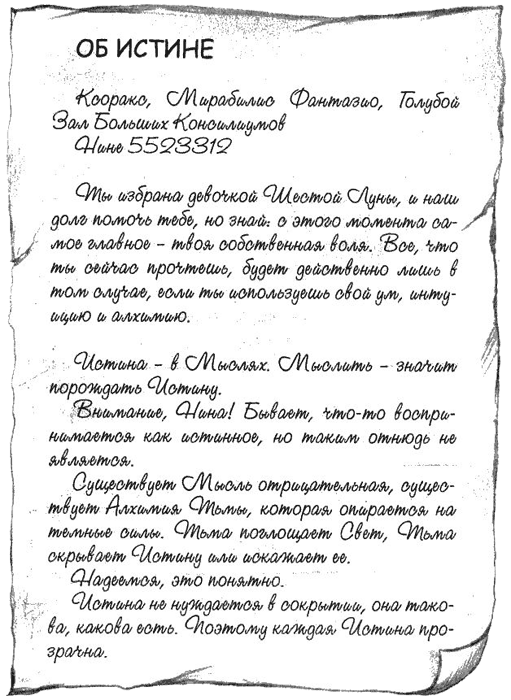 ОБ ИСТИНЕ
Ксоракс, Мирабилис Фантазио, Голубой
Зал Больших Консилиумов
Нине 5523312
Ты избрана девочкой Шестой Луны, и наш
долг помочь тебе, но знай: с этого момента са-
мое главное – твоя собственная воля. Все, что
ты сейчас прочтешь, будет действенно лишь в
том случае, если ты используешь свой ум, инту-
ицию и алхимию.
Истина – в Мыслях. Мыслить – значит
порождать Истину.
Внимание, Нина! Бывает, что-то воспри-
нимается как истинное, но таким отнюдь не
является.
Существует Мысль отрицательная, сущес-
твует Алхимия Тьмы, которая опирается на
темные силы. Тьма поглощает Свет, Тьма
скрывает Истину или искажает ее.
Надеемся, это понятно.
Истина не нуждается в сокрытии, она тако-
ва, какова есть. Поэтому каждая Истина про-
зрачна.